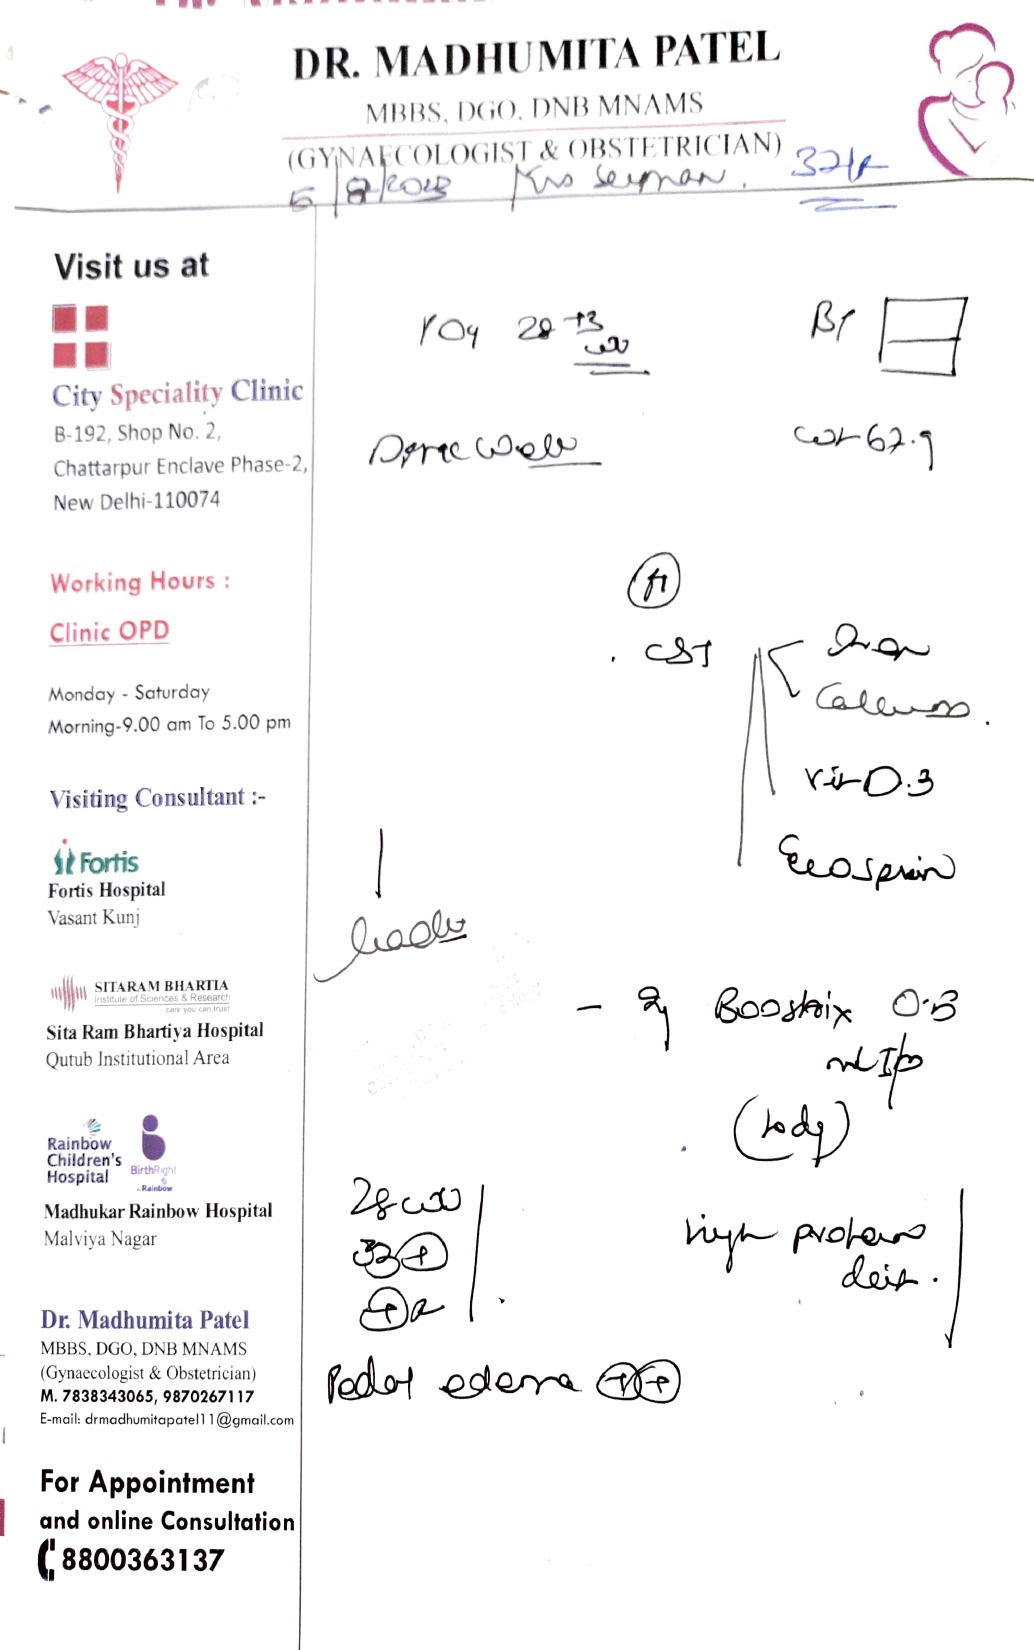 DR. MADHUMITA PATEL
MBBS, DGO, DNB MNAMS
(GYNAECOLOGIST & OBSTETRICIAN)
Visit us at
City Speciality Clinic
B-192, Shop No. 2,
Chattarpur Enclave Phase-2,
New Delhi-110074
Working Hours :
Clinic OPD
Monday - Saturday
Morning-9.00 am To 5.00 pm
Visiting Consultant :-
Fortis
Fortis Hospital
Vasant Kunj
SITARAM BHARTIA
Institute of Sciences & Research
care you can trust
Sita Ram Bhartiya Hospital
Qutub Institutional Area
Rainbow
Children's
Hospital
BirthRight
Rainbow
Madhukar Rainbow Hospital
Malviya Nagar
Dr. Madhumita Patel
MBBS, DGO, DNB MNAMS
(Gynaecologist & Obstetrician)
M. 7838343065, 9870267117
E-mail: drmadhumitapatel11@gmail.com
For Appointment
and online Consultation
8800363137
28 +3
wt 67.9
CST
Iron
Calcium
Vit D.3
Ecosprin
- Boostrix 0.5
ml I/m
(tody)
28
32 +
high protein
deit.
Pedal edema ++